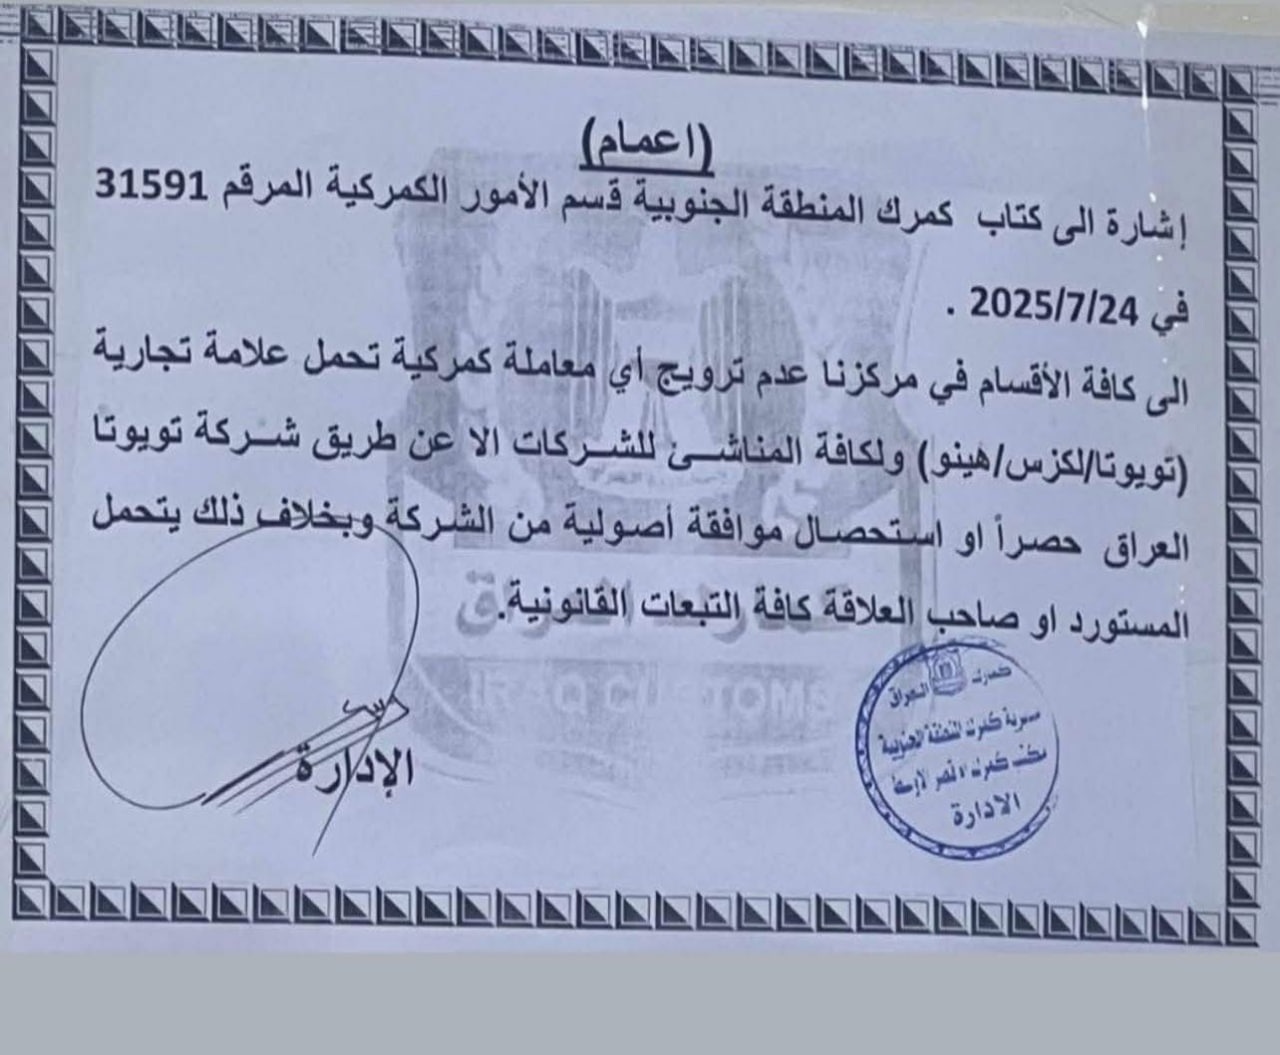 (اعمام)
إشارة الى كتاب كمرك المنطقة الجنوبية قسم الأمور الكمركية المرقم 31591
في 2025/7/24 .
الى كافة الأقسام في مركزنا عدم ترويج أي معاملة كمركية تحمل علامة تجارية
(تويوتا/لكزس/هينو) ولكافة المناشئ للشركات الا عن طريق شركة تويوتا
العراق حصراً او استحصال موافقة أصولية من الشركة وبخلاف ذلك يتحمل
المستورد او صاحب العلاقة كافة التبعات القانونية.
كمارك العراق
IRAQ CUSTOMS
الإدارة
كمارك العراق
مديرية كمرك المنطقة الجنوبية
كمرك ام قصر
الادارة